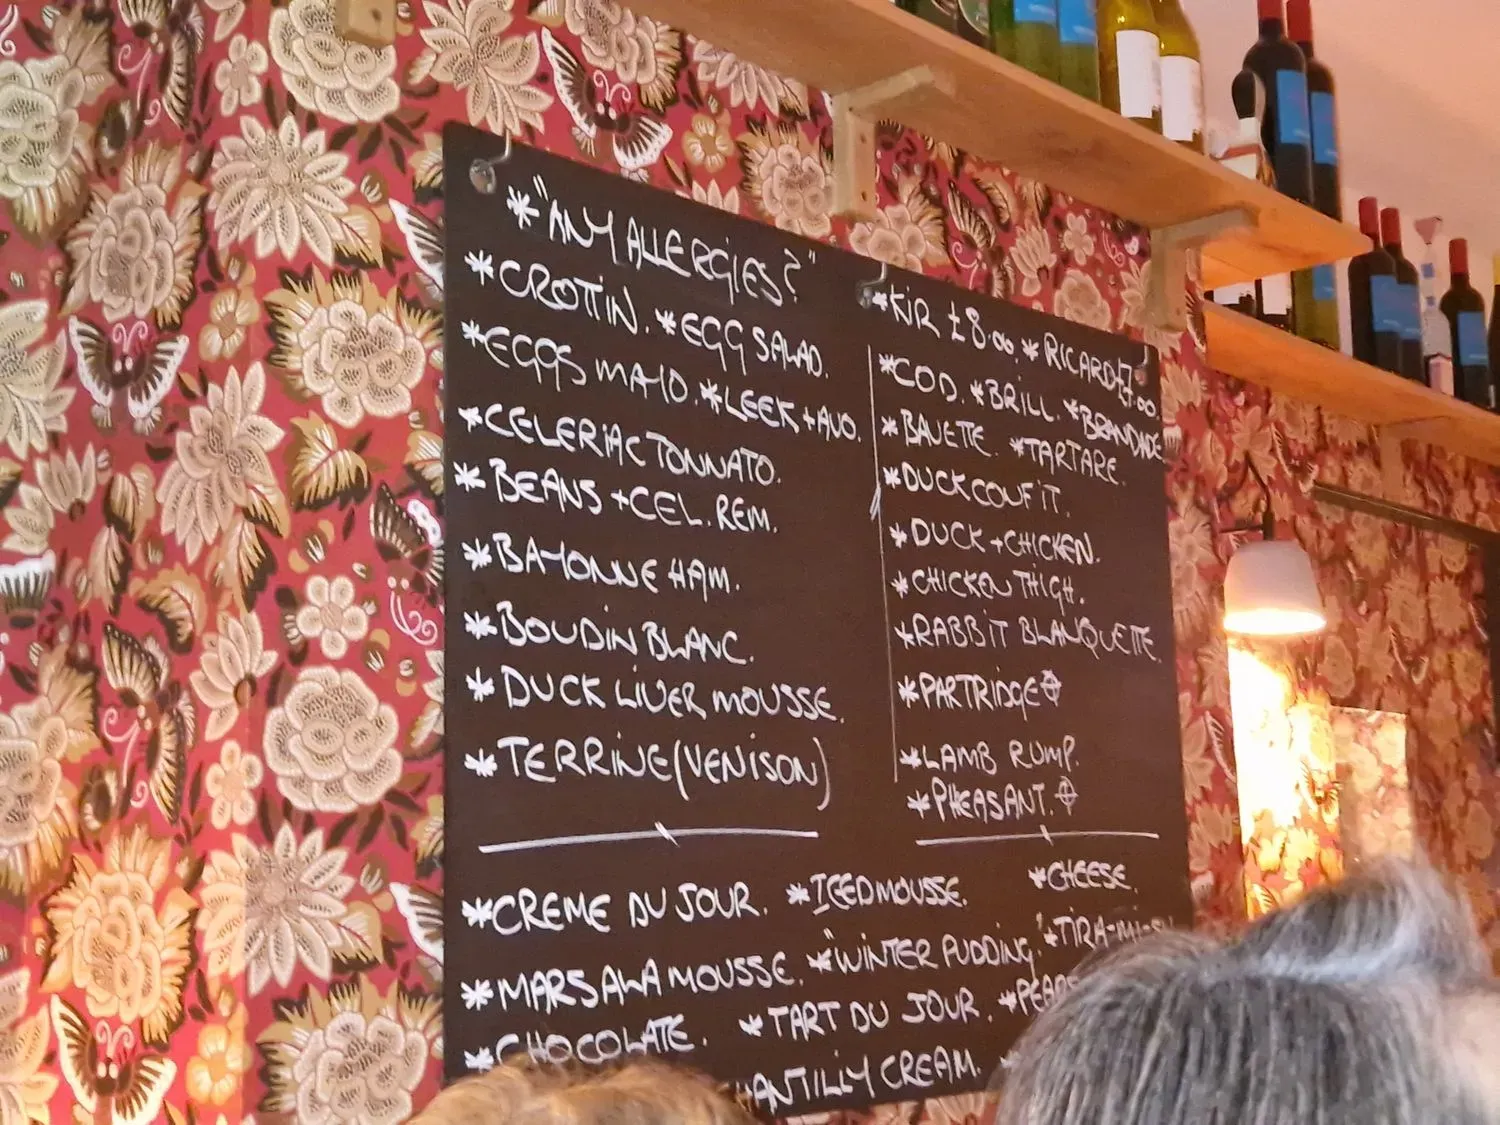 *"ANY ALLERGIES?"
*CROTTIN. *EGG SALAD.
*EGGS MAYO. *LEEK + AVO.
*CELERIAC TONNATO.
*BEANS + CEL. REM.
*BAYONNE HAM.
*BOUDIN BLANC.
*DUCK LIVER MOUSSE.
*TERRINE (VENISON)
*KIR £8.00. *RICARD £7.00.
*COD. *BRILL. *BRANDADE
*BAVETTE. *TARTARE.
*DUCK CONFIT.
*DUCK + CHICKEN.
*CHICKEN THIGH.
*RABBIT BLANQUETTE.
*PARTRIDGE
*LAMB RUMP.
*PHEASANT.
*CREME DU JOUR. *ICED MOUSSE. *CHEESE.
*MARSALA MOUSSE. *"WINTER PUDDING." *TIRA-MI-SU
*CHOCOLATE. *TART DU JOUR. *PEARS
HANTILLY CREAM.